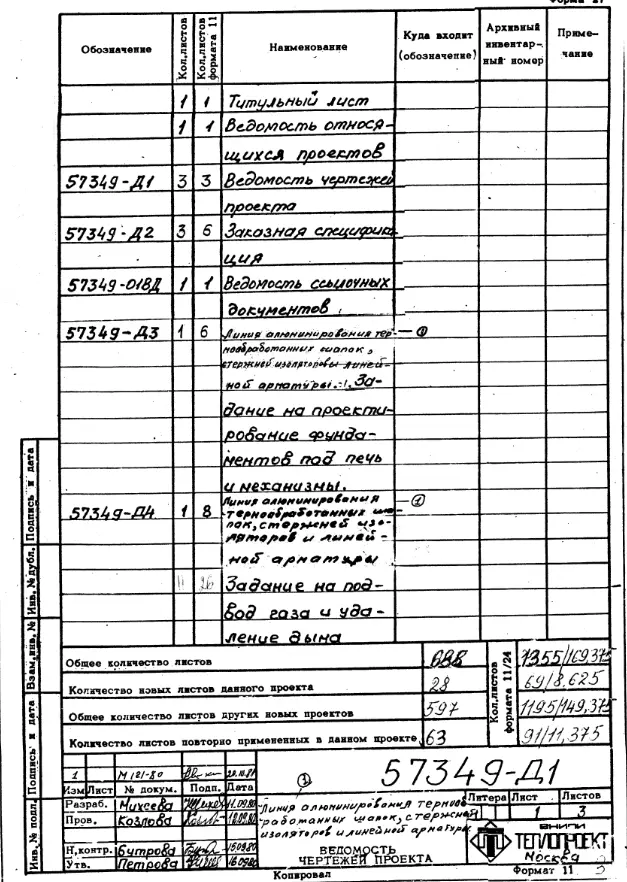 Форма 27
Обозначение Кол.листов Кол.листов формата 11 Наименование Куда входит (обозначение) Архивный инвентар-ный номер Приме-чание
1 1 Титульный лист
1 1 Ведомость относя-
щихся проектов
57349-Д1 3 3 Ведомость чертежей
проекта
57349-Д2 3 6 Заказная специфика-
ция
57349-018Д 1 1 Ведомость ссылочных
документов.
57349-Д3 1 6 Линия алюминирования тер- ①
мообработанных шапок,
стержней изоляторовы линей-
ной арматуры. За-
дание на проекти-
рование фунда-
ментов под печь
и механизмы.
57349-Д4 1 8 Линия алюминирования ①
термообработанных ша-
пок, стержней изо-
ляторов и линей-
ной арматуры
11 26 Задание на под-
вод газа и уда-
ление дыма
Общее количество листов 688 Кол.листов формата 11/24 1355/169,375
Количество новых листов данного проекта 28 69/8.625
Общее количество листов других новых проектов 597 1195/149,375
Количество листов повторно примененных в данном проекте 63 91/11,375
Подпись и дата
Инв.№ дубл.
Взам.инв.№
Подпись и дата
Инв.№ подл.
57349-Д1
1 М121-80
Изм Лист № докум. Подп. Дата
Разраб. Михеева 11.09.80
Пров. Козлова 12.09.80
Н.контр. Бутрова 15.09.80
Утв. Петрова 16.09.80
①
Линия алюминирования термооб-
работанных шапок, стержней
изоляторов и линейной арматуры.
ВЕДОМОСТЬ
ЧЕРТЕЖЕЙ ПРОЕКТА
Литера Лист Листов
1 3
ВНИПИ
ТЕПЛОПРОЕКТ
Москва
Копировал Формат 11